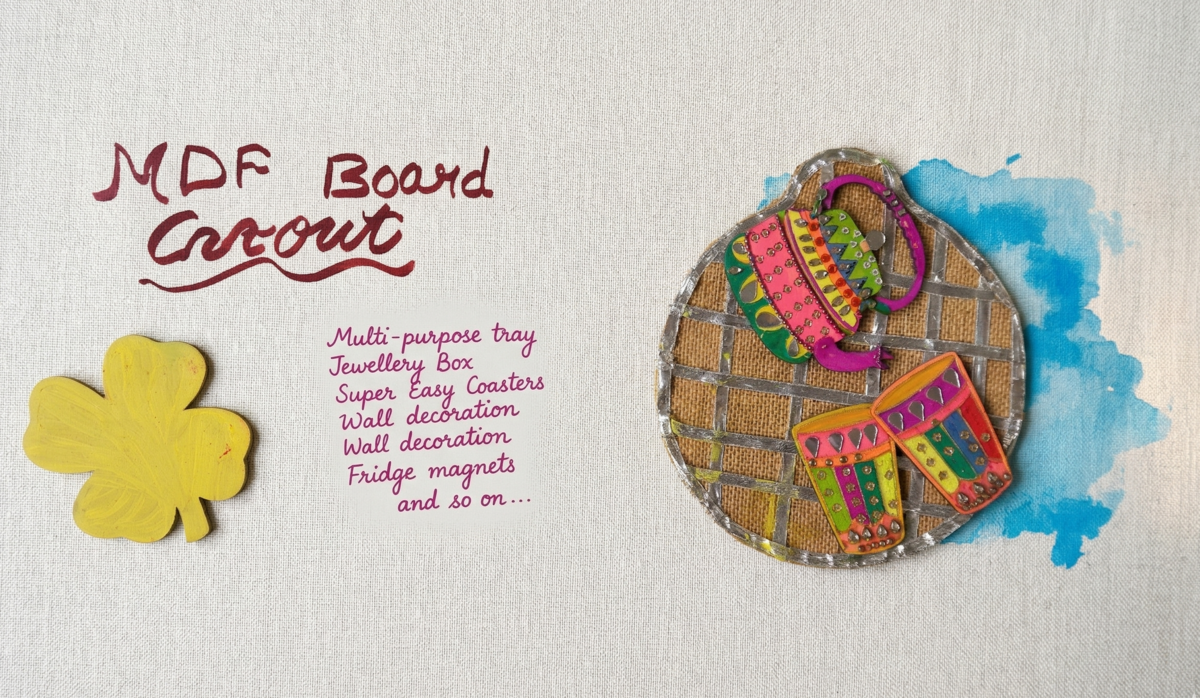 MDF Board
Cutout
Multi-purpose tray
Jewellery Box
Super Easy Coasters
Wall decoration
Wall decoration
Fridge magnets
and so on...